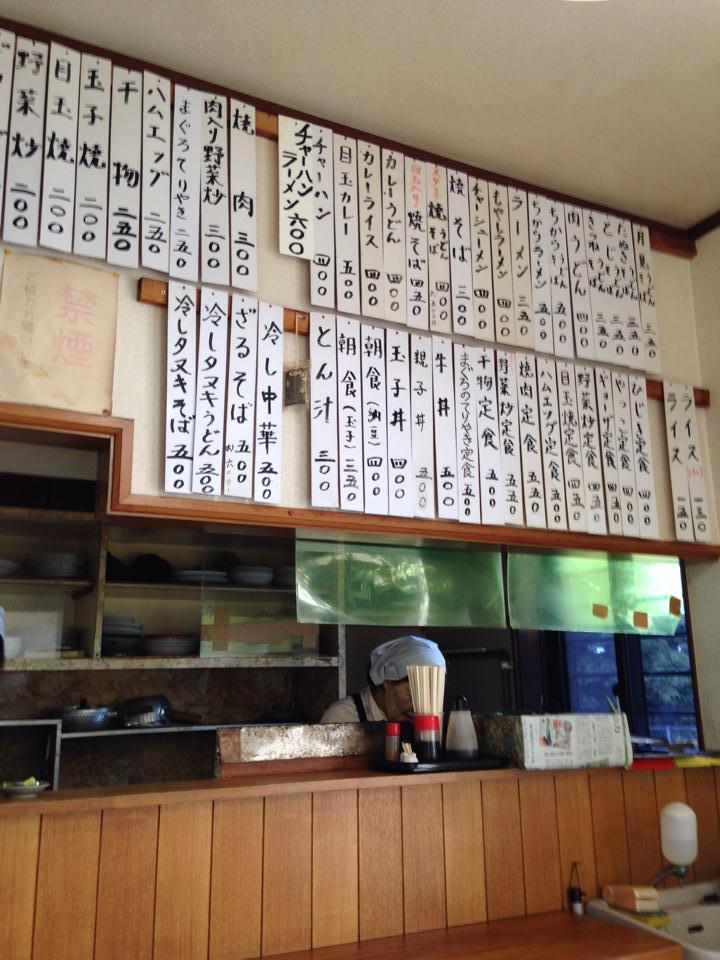 月見うどん 三五〇
たぬきそば うどん 三五〇
とじそば うどん 三五〇
きつねそば うどん 三五〇
肉うどん 四〇〇
ちからそば うどん 五〇〇
ちからラーメン 五〇〇
ラーメン 三五〇
もやしラーメン 四〇〇
チャーシューメン 四〇〇
焼そば 三〇〇
焼そば うどん 四〇〇
目玉入り 焼そば 四五〇
カレーうどん 四〇〇
カレーライス 四〇〇
目玉カレー 五〇〇
チャーハン 四〇〇
チャーハン ラーメン 六〇〇
焼肉 三〇〇
肉入り野菜炒 三〇〇
まぐろてりやき 二五〇
ハムエッグ 二五〇
干物 二五〇
玉子焼 二〇〇
目玉焼 二〇〇
野菜炒 二〇〇
ライス(小)
ライス 一五〇
ひじき定食 四〇〇
やっこ定食 四〇〇
ギョーザ定食
野菜炒定食 四五〇
目玉焼定食 四五〇
ハムエッグ定食 五五〇
焼肉定食 五五〇
野菜炒定食 五五〇
干物定食 五〇〇
まぐろのてりやき定食 五〇〇
牛丼 五〇〇
親子丼 五〇〇
玉子丼 四〇〇
朝食(納豆) 四〇〇
朝食(玉子) 三五〇
とん汁 三〇〇
冷し中華 五〇〇
ざるそば 五〇〇
冷しタヌキうどん 五〇〇
冷しタヌキそば 五〇〇
禁煙